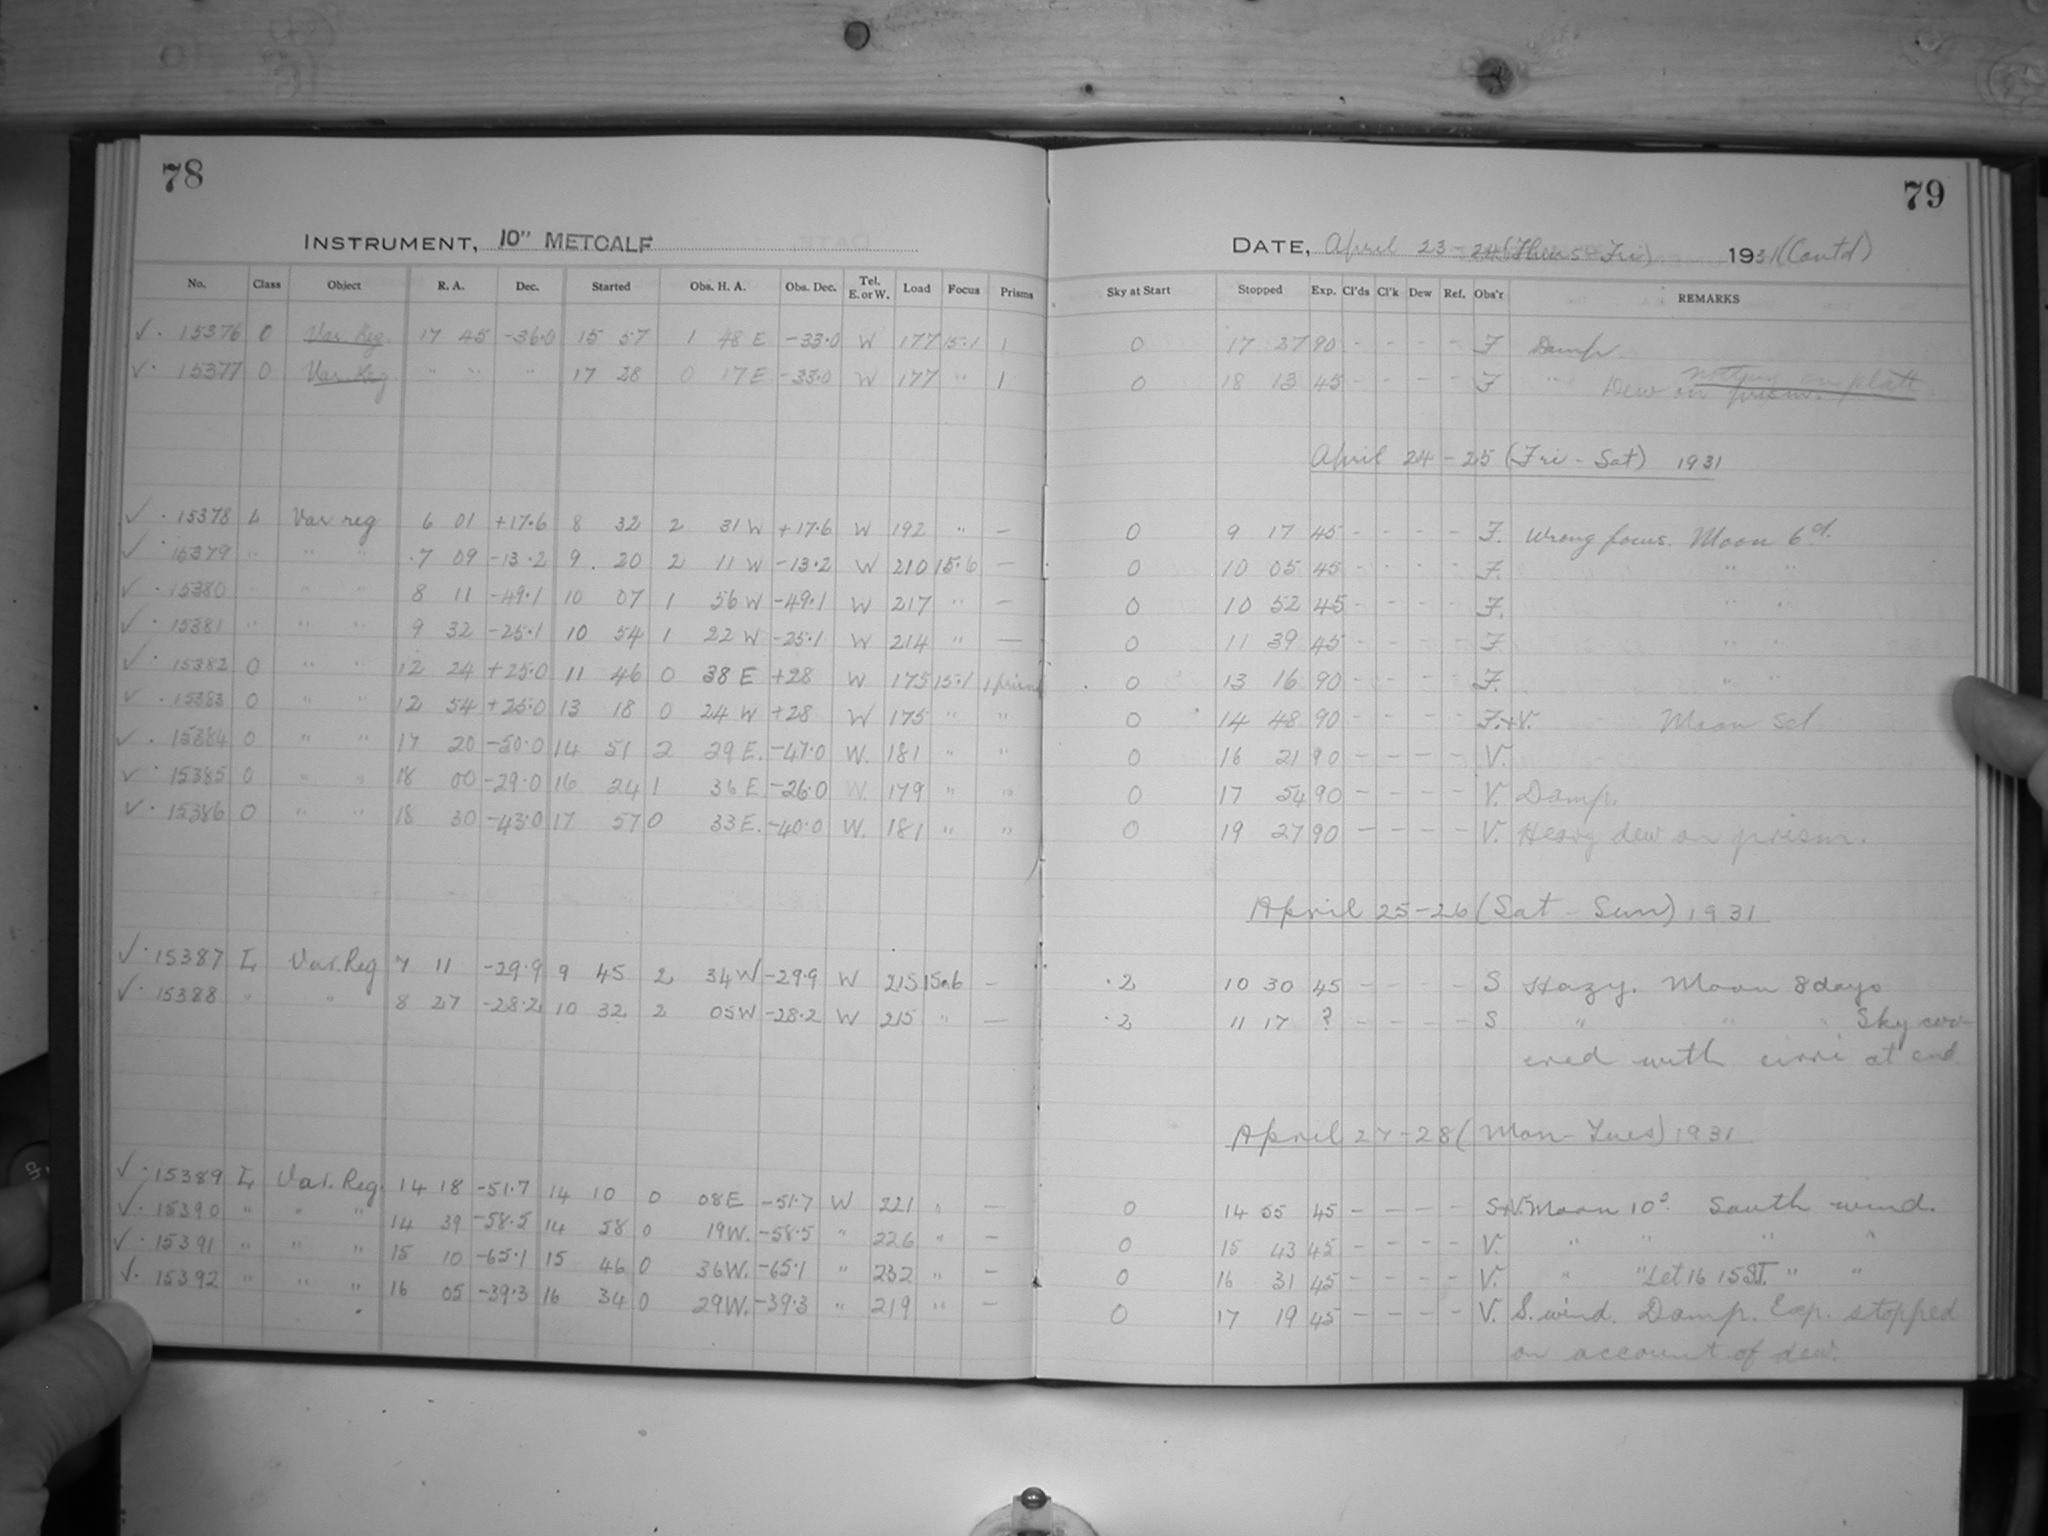 78
79
INSTRUMENT, 10" METCALF
DATE, April 23-24 (Thurs-Fri) 1931 (Contd)
No. Class Object R. A. Dec. Started Obs. H. A. Obs. Dec. Tel. E. or W. Load Focus Prisms Sky at Start Stopped Exp. Cl'ds Cl'k Dew Ref. Obs'r REMARKS
✓. 15376 O Var. Reg. 17 45 -36.0 15 57 1 48 E -33.0 W 177 15.1 1 0 17 27 90 - - - - F Damp
✓. 15377 O Var. Reg " " " 17 28 0 17 E -33.0 W 177 " 1 0 18 13 45 - - - - F " Dew on prism. nothing on plate
April 24-25 (Fri-Sat) 1931
✓. 15378 L Var reg 6 01 +17.6 8 32 2 31 W +17.6 W 192 " - 0 9 17 45 - - - - F. Wrong focus. Moon 6d.
✓. 15379 " " " 7 09 -13.2 9 20 2 11 W -13.2 W 210 15.6 - 0 10 05 45 - - - - F. " "
✓. 15380 " " " 8 11 -49.1 10 07 1 56 W -49.1 W 217 " - 0 10 52 45 - - - - F. " "
✓. 15381 " " " 9 32 -25.1 10 54 1 22 W -25.1 W 214 " - 0 11 39 45 - - - - F. " "
✓. 15382 O " " 12 24 +25.0 11 46 0 38 E +28 W 175 15.1 1 prism 0 13 16 90 - - - - F. " "
✓. 15383 O " " 12 54 +25.0 13 18 0 24 W +28 W 175 " " 0 14 48 90 - - - - F.+V. Moon set
✓. 15384 O " " 17 20 -50.0 14 51 2 29 E. -47.0 W. 181 " " 0 16 21 90 - - - - V.
✓. 15385 O " " 18 00 -29.0 16 24 1 36 E -26.0 W. 179 " " 0 17 54 90 - - - - V. Damp.
✓. 15386 O " " 18 30 -43.0 17 57 0 33 E. -40.0 W. 181 " " 0 19 27 90 - - - - V. Heavy dew on prism.
April 25-26 (Sat-Sun) 1931
✓. 15387 L Var. Reg 7 11 -29.9 9 45 2 34 W -29.9 W 215 15.6 - .2 10 30 45 - - - - S Hazy. Moon 8 days
✓. 15388 " " 8 27 -28.2 10 32 2 05 W -28.2 W 215 " - .2 11 17 ? - - - - S " " " Sky cov-
ered with cirri at end.
April 27-28 (Mon-Tues) 1931
✓. 15389 L Var. Reg. 14 18 -51.7 14 10 0 08 E -51.7 W 221 " - 0 14 55 45 - - - - S+V. Moon 10d. South wind.
✓. 15390 " " " 14 39 -58.5 14 58 0 19 W. -58.5 " 226 " - 0 15 43 45 - - - - V. " " " "
✓. 15391 " " " 15 10 -65.1 15 46 0 36 W. -65.1 " 232 " - 0 16 31 45 - - - - V. " " Set 16 15 S.T. " "
✓. 15392 " " " 16 05 -39.3 16 34 0 29 W. -39.3 " 219 " - 0 17 19 45 - - - - V. S. wind. Damp. Exp. stopped
on account of dew.